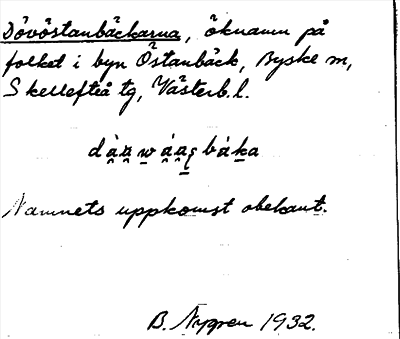 Dövöstanbäckarna, öknamn på
folket i byn Östanbäck, Byske sn,
Skellefteå tg, Västerb. l.
Namnets uppkomst obekant.
B. Nygren 1932.